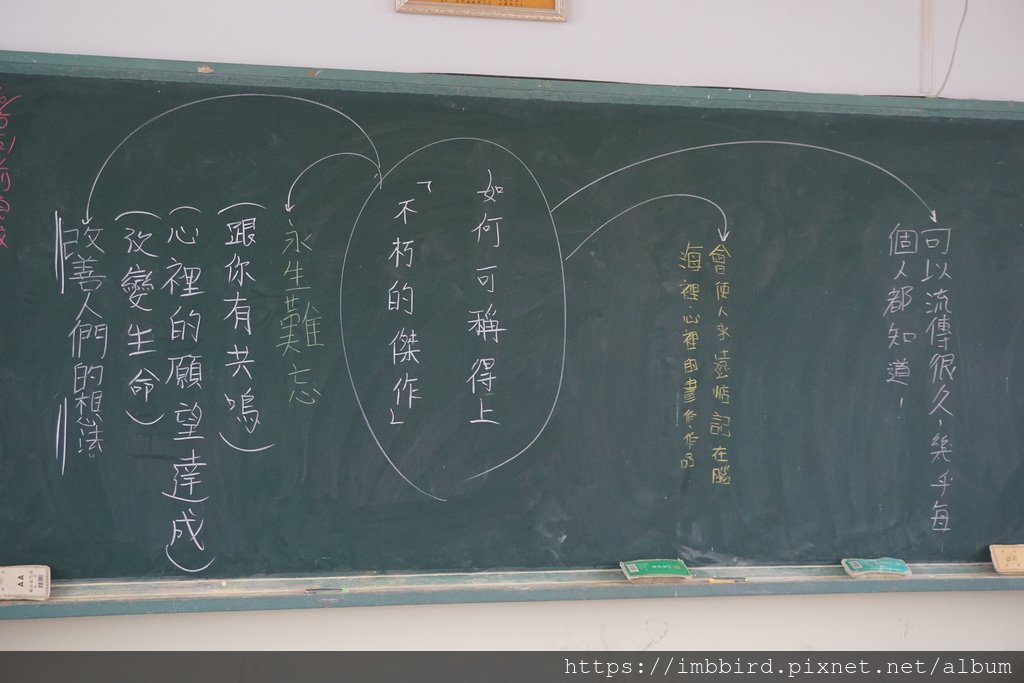 可以流傳很久，幾乎每
個人都知道！
會使人永遠惦記在腦
海裡心裡的畫作作品
如何可稱得上
「不朽的傑作」
永生難忘
（跟你有共鳴）
（心裡的願望達成）
（改變生命）
改善人們的想法
https://imbbird.pixnet.net/album